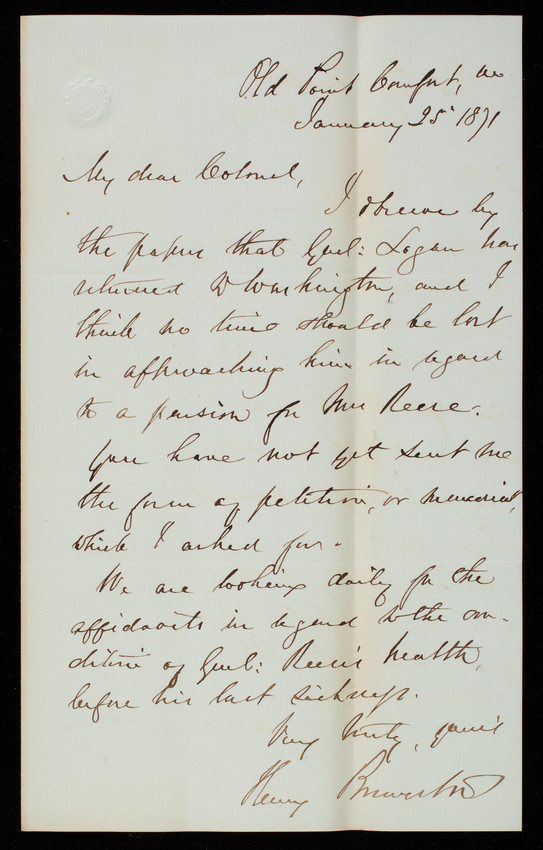 Old Point Comfort, Va
January 25" 1871
My dear Colonel,
I observe by
the papers that Genl: Logan has
returned to Washington, and I
think no time should be lost
in approaching him in regard
to a pension for Mrs Reese.
You have not yet sent me
the form of petition, or memorial,
which I asked for.
We are looking daily for the
affidavits in regard to the con-
dition of Genl: Reese's health,
before his last sickness.
Very truly, yours
Henry Brewerton